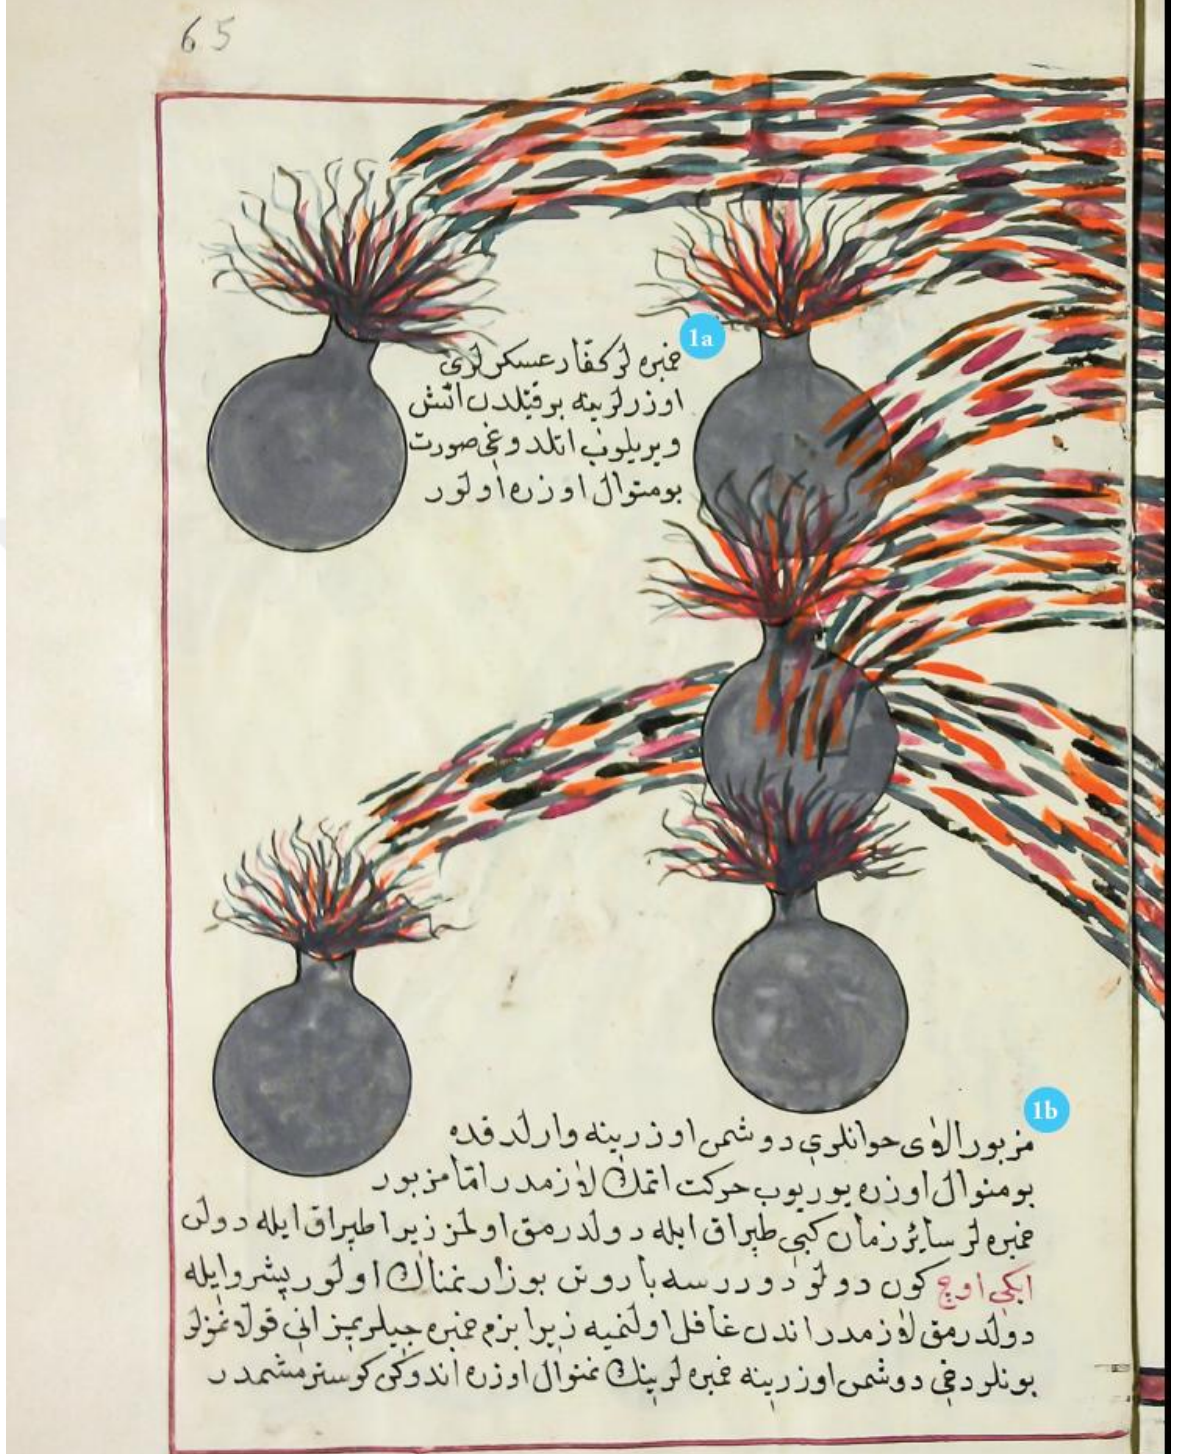 65
1a
خمبره لر كفار عسكرلرى
اوزرلرينه برقيلدن اتش
ويريلوب اتلدوغى صورت
بومنوال اوزره اولور
1b
مزبور الاى حوانلرى دوشمن اوزرينه وارلدقده
بومنوال اوزره يوريوب حركت اتمك لازمدر امّا مزبور
خمبره لر سائر زمان كبى طپراق ايله دولدرمق اولمز زيرا طپراق ايله دولن
ايكى اوچ كون دولو دوررسه باروتن بوزار نمناك اولور پشرو ايله
دولدرمق لازمدر اندن غافل اولنميه زيرا بزم خمبره جيلريمز انى قولانمزلر
بونلر دخى دوشمن اوزرينه خمبره لرينك منوال اوزره اندوكى كوسترمشمدر